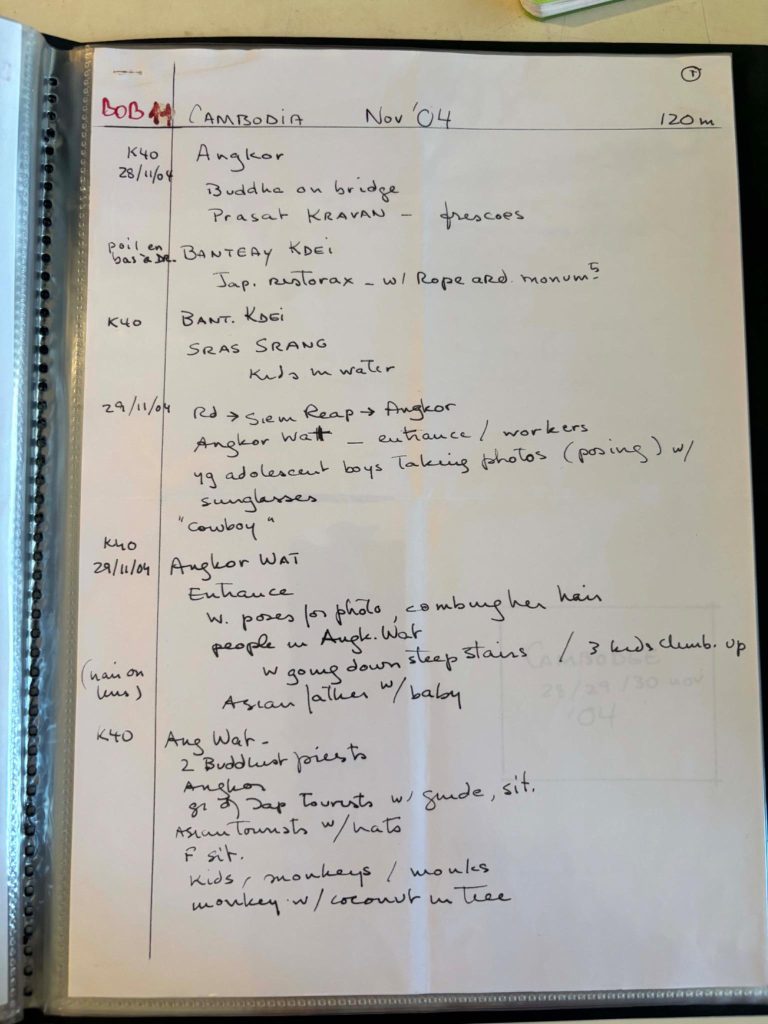 ①
BOB 11 CAMBODIA Nov '04 120 m
K40 Angkor
28/11/04
Buddha on bridge
Prasat KRAVAN – frescoes
poil en bas à DR. BANTEAY KDEI
Jap. restorax – w/ Rope ard. monumts
K40 BANT. KDEI
SRAS SRANG
Kids in water
29/11/04 Rd → Siem Reap → Angkor
Angkor Wat – entrance / workers
yg adolescent boys taking photos (posing) w/
sunglasses
"Cowboy"
K40
29/11/04 Angkor WAT
Entrance
W. poses for photo, combing her hair
people in Angk. Wat
W going down steep stairs / 3 kids climb. up
(hair on lens) Asian father w/ baby
K40 Ang Wat –
2 Buddhist priests
Angkor
gr of Jap Tourists w/ guide, sit.
Asian Tourists w/ hats
F sit.
Kids, monkeys / monks
monkey w/ coconut in Tree
CAMBODGE
28/29/30 nov
'04